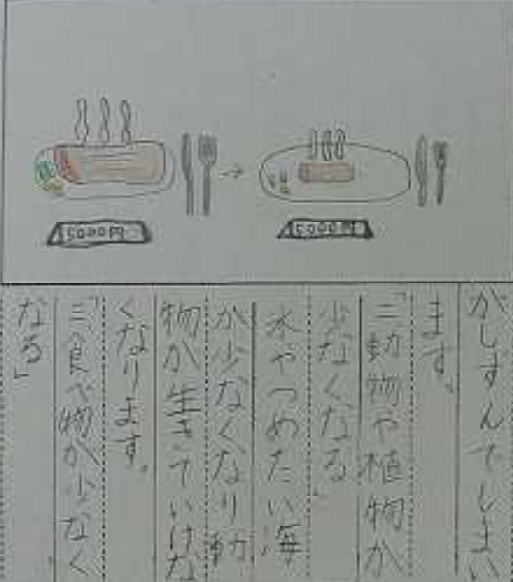 5000円
5000円
がしずんでしまい
ます。
「二動物や植物が
少なくなる」
氷やつめたい海
が少なくなり動
物が生きていけな
くなります。
「三食べ物が少なく
なる」